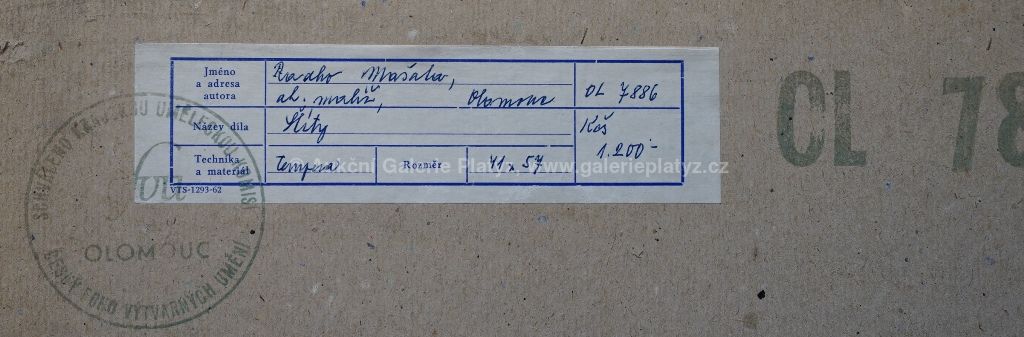 Jméno
a adresa
autora
Radko Mašata,
ak. malíř, Olomouc
OL 7886
Název díla
Štíty
Kčs
1.200-
Technika
a materiál
Tempera
Rozměr
41 x 57
VTS-1293-62
© Aukční Galerie Platýz – www.galerieplatyz.cz
SCHVÁLENO KRAJSKOU UMĚLECKOU KOMISÍ
OLOMOUC
ČESKÝ FOND VÝTVARNÝCH UMĚNÍ
OL 78